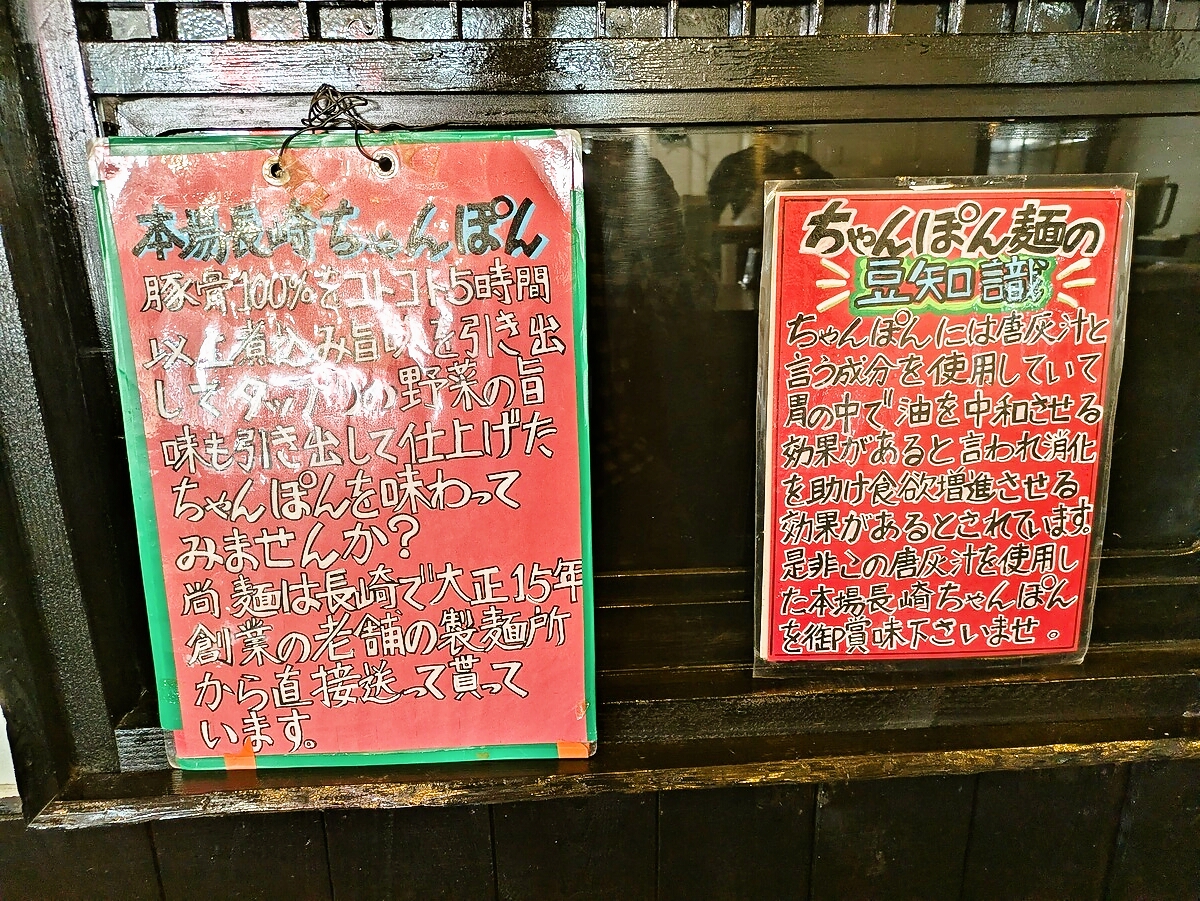 本場長崎ちゃんぽん
豚骨100%をコトコト5時間
以上煮込み旨味を引き出
してタップリの野菜の旨
味も引き出して仕上げた
ちゃんぽんを味わって
みませんか?
尚、麺は長崎で大正15年
創業の老舗の製麺所
から直接送って貰って
います。
ちゃんぽん麺の
豆知識
ちゃんぽんには唐灰汁と
言う成分を使用していて
胃の中で油を中和させる
効果があると言われ消化
を助け食欲増進させる
効果があるとされています。
是非この唐灰汁を使用し
た本場長崎ちゃんぽん
を御賞味下さいませ。